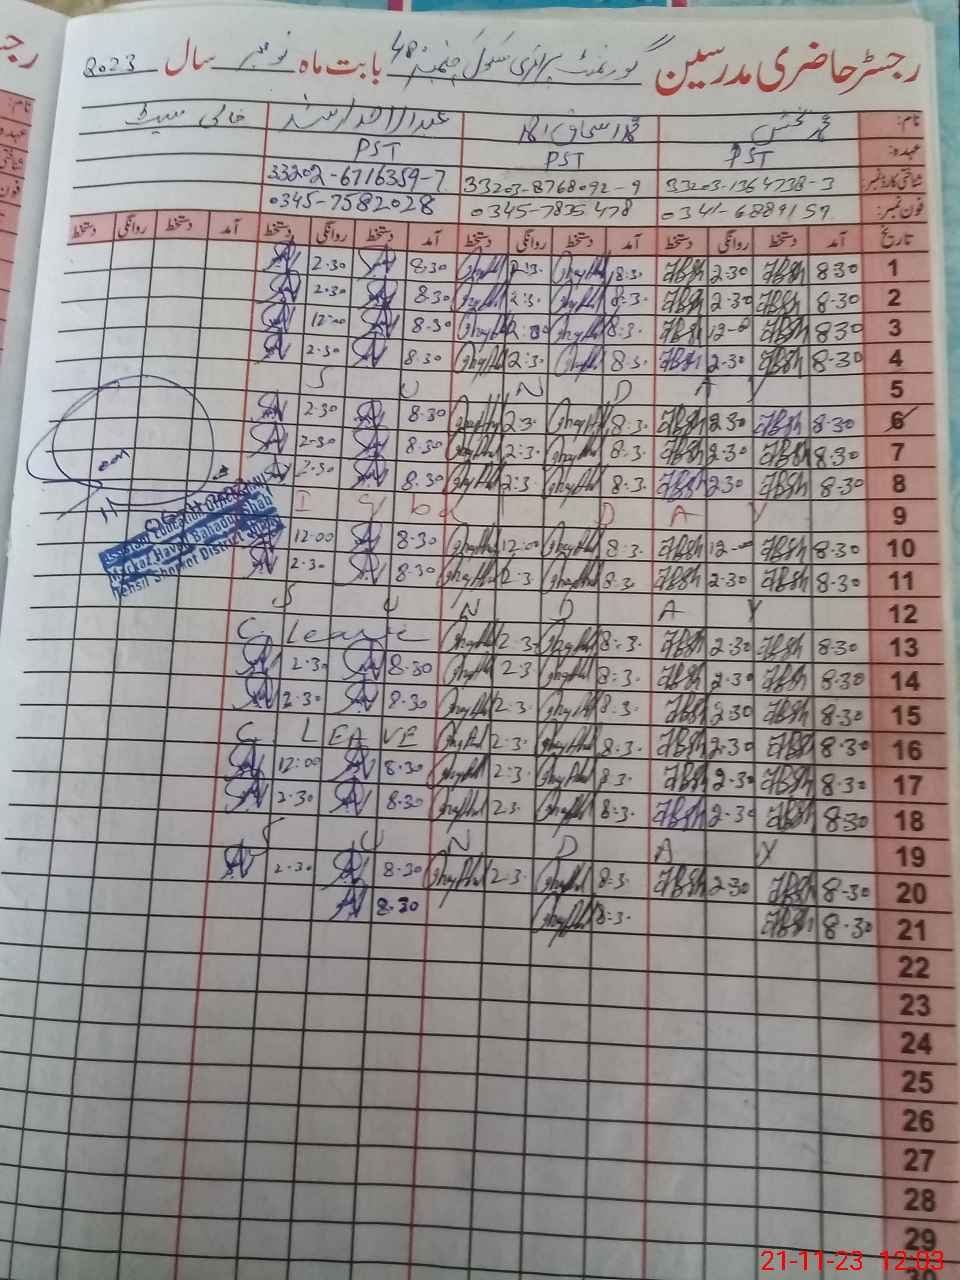 رجسٹر حاضری مدرسین گورنمنٹ پرائمری سکول چمن نمبر 48 بابت ماہ نومبر سال 2023
نام: محمد بخش محمد اسحاق عبدالاحد ارشد خالی سیٹ
عہدہ: PST PST PST
شناختی کارڈ نمبر: 33203-1364738-3 33203-8768092-9 33202-6716359-7
فون نمبر: 0341-6889159 0345-7835478 0345-7582028
تاریخ آمد دستخط روانگی دستخط آمد دستخط روانگی دستخط آمد دستخط روانگی دستخط آمد دستخط روانگی دستخط
1 8:30 2:30 8:3. 2:3. 8:30 2:30
2 8:30 2:30 8:3. 2:3. 8:30 2:30
3 8:30 12-00 8:3. 12:00 8:30 12:00
4 8:30 2:30 8:3. 2:3. 8:30 2:30
5 S U N D A Y
6 8:30 2:30 8:3. 2:3. 8:30 2:30
7 8:30 2:30 8:3. 2:3. 8:30 2:30
8 8:30 2:30 8:3. 2:3. 8:30 2:30
9 I q b a l D A Y
10 8:30 12-00 8:3. 12:00 8:30 12:00
11 8:30 2:30 8:3. 2:3. 8:30 2:30
12 S U N D A Y
13 8:30 2:30 8:3. 2:3. C Leave
14 8:30 2:30 8:3. 2:3. 8:30 2:30
15 8:30 2:30 8:3. 2:3. 8:30 2:30
16 8:30 2:30 8:3. 2:3. C LEAVE
17 8:30 2:30 8:3. 2:3. 8:30 12:00
18 8:30 2:30 8:3. 2:3. 8:30 2:30
19 S U N D A Y
20 8:30 2:30 8:3. 2:3. 8:30 2:30
21 8:30 8:3. 8:30
22
23
24
25
26
27
28
29
30
Assistant Education Officer
Markaz Haveli Bahadur Shah
Tehsil Shorkot District Jhang
21-11-23 12:03